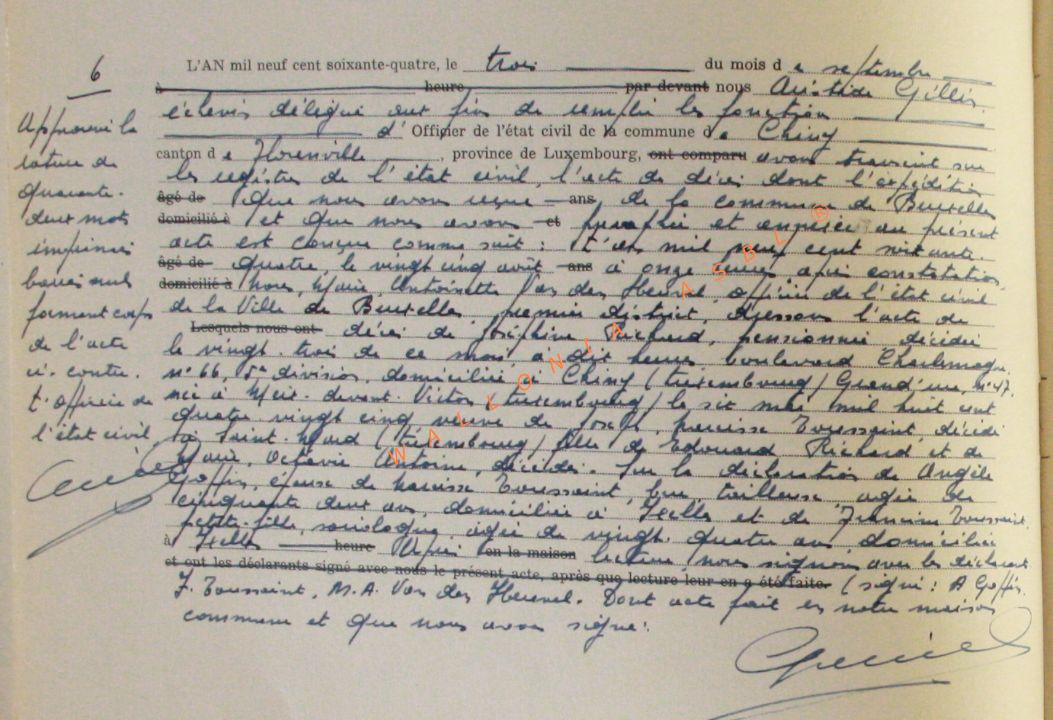 6
L'AN mil neuf cent soixante-quatre, le trois du mois d e septembre
à heure par devant nous Aristide Gillis,
échevin délégué aux fins de remplir les fonctions
d' Officier de l'état civil de la commune d e Chiny
canton d e Florenville, province de Luxembourg, ont comparu avons transcrit sur
les registres de l'état civil, l'acte de décès dont l'expédition
âgé de que nous avons reçue ans, de la commune de Bruxelles
domicilié à et que nous avons et paraphée et annexée au présent
acte est conçue comme suit : L'an mil neuf cent soixante-
âgé de quatre, le vingt cinq août ans à onze heures après constatation,
domicilié à Nous, Marie, Antoinette Van den Heuvel, officier de l'état civil
de la Ville de Bruxelles, premier district, dressons l'acte de
Lesquels nous ont décès de Joséphine Richard, pensionnée décédée
le vingt-trois de ce mois à dix heures boulevard Charlemagne,
n° 66, 5e division, domiciliée à Chiny (Luxembourg) Grand'rue, n° 47,
née à Meix-devant-Virton (Luxembourg) le six mai mil huit cent
quatre vingt cinq veuve de Joseph, Narcisse Toussaint, décédé
à Saint-Mard (Luxembourg) fille de Edouard Richard et de
Marie, Octavie Antoine, décédés. Sur la déclaration de Angèle
Goffin, épouse de Narcisse Toussaint, bru, tailleuse âgée de
cinquante deux ans, domiciliée à Ixelles et de Francine Toussaint,
petite-fille, sociologue, âgée de vingt-quatre ans, domiciliée
à Ixelles heure Après en la maison lecture, nous signons avec les déclarants
et ont les déclarants signé avec nous le présent acte, après que lecture leur en a été faite. (signé : A Goffin,
F. Toussaint, M.A. Van den Heuvel. Dont acte fait en notre maison
commune et que nous avons signé.
Approuvé la
rature de
quarante-
deux mots
imprimés
barrés nuls
formant corps
de l'acte
ci-contre.
L'officier de
l'état civil,
WALLONIA ASBL ®